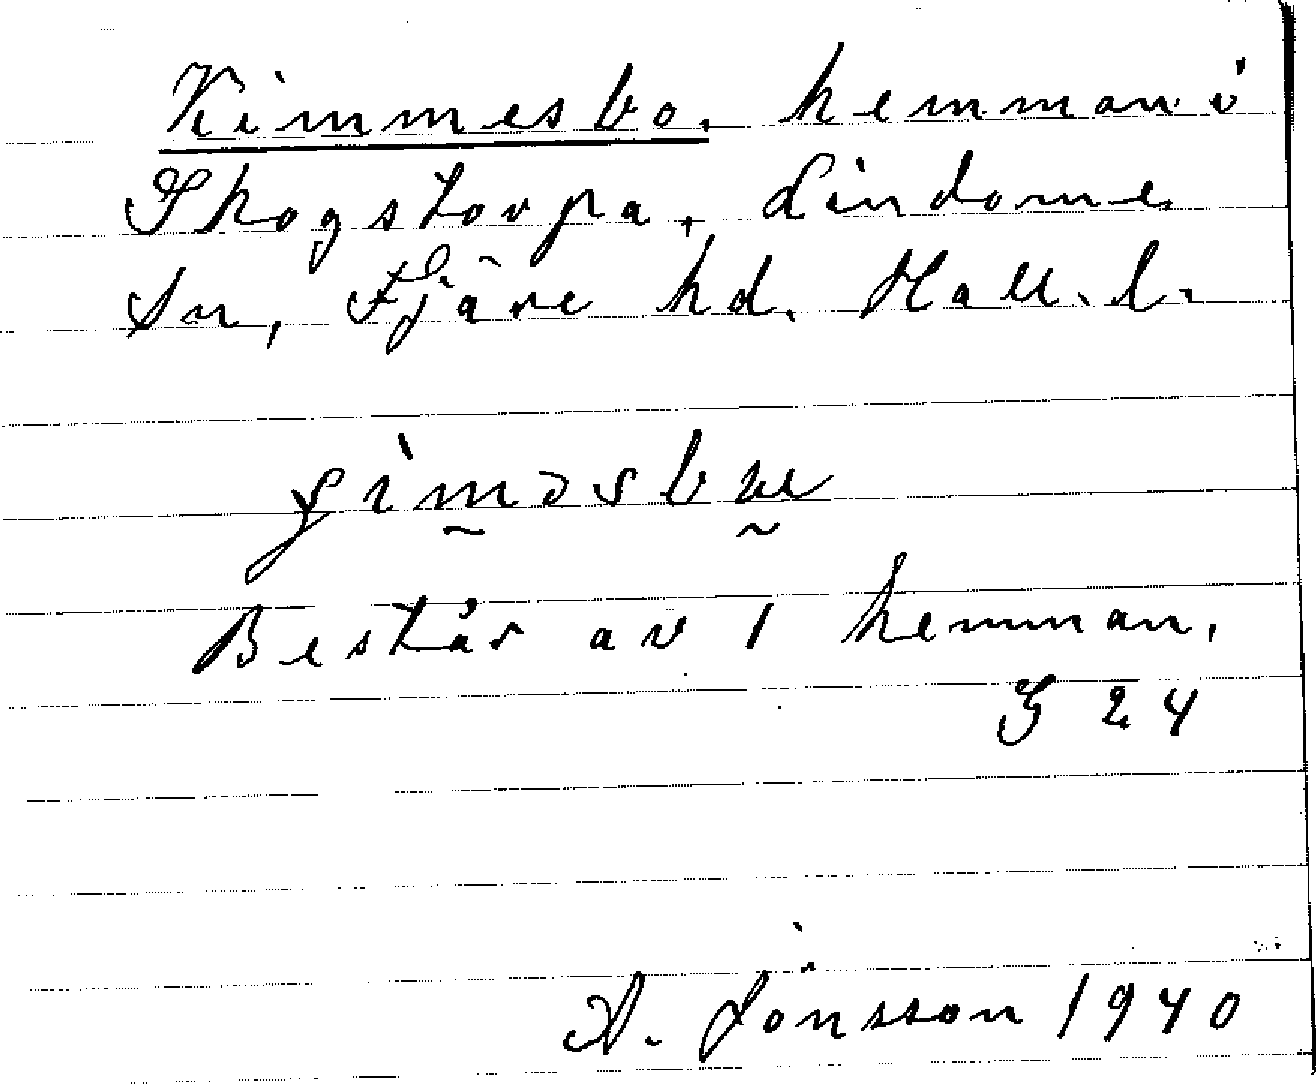 Kimmesbo, hemman i
Skogstorpa, Lindome
Sn, Fjäre hd. Hall. l.
Består av 1 hemman.
G 24
A. Jönsson 1940